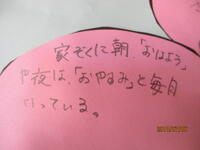 家ぞくに朝、「おはよう」
や夜は、「おやすみ」と毎日
いっている。